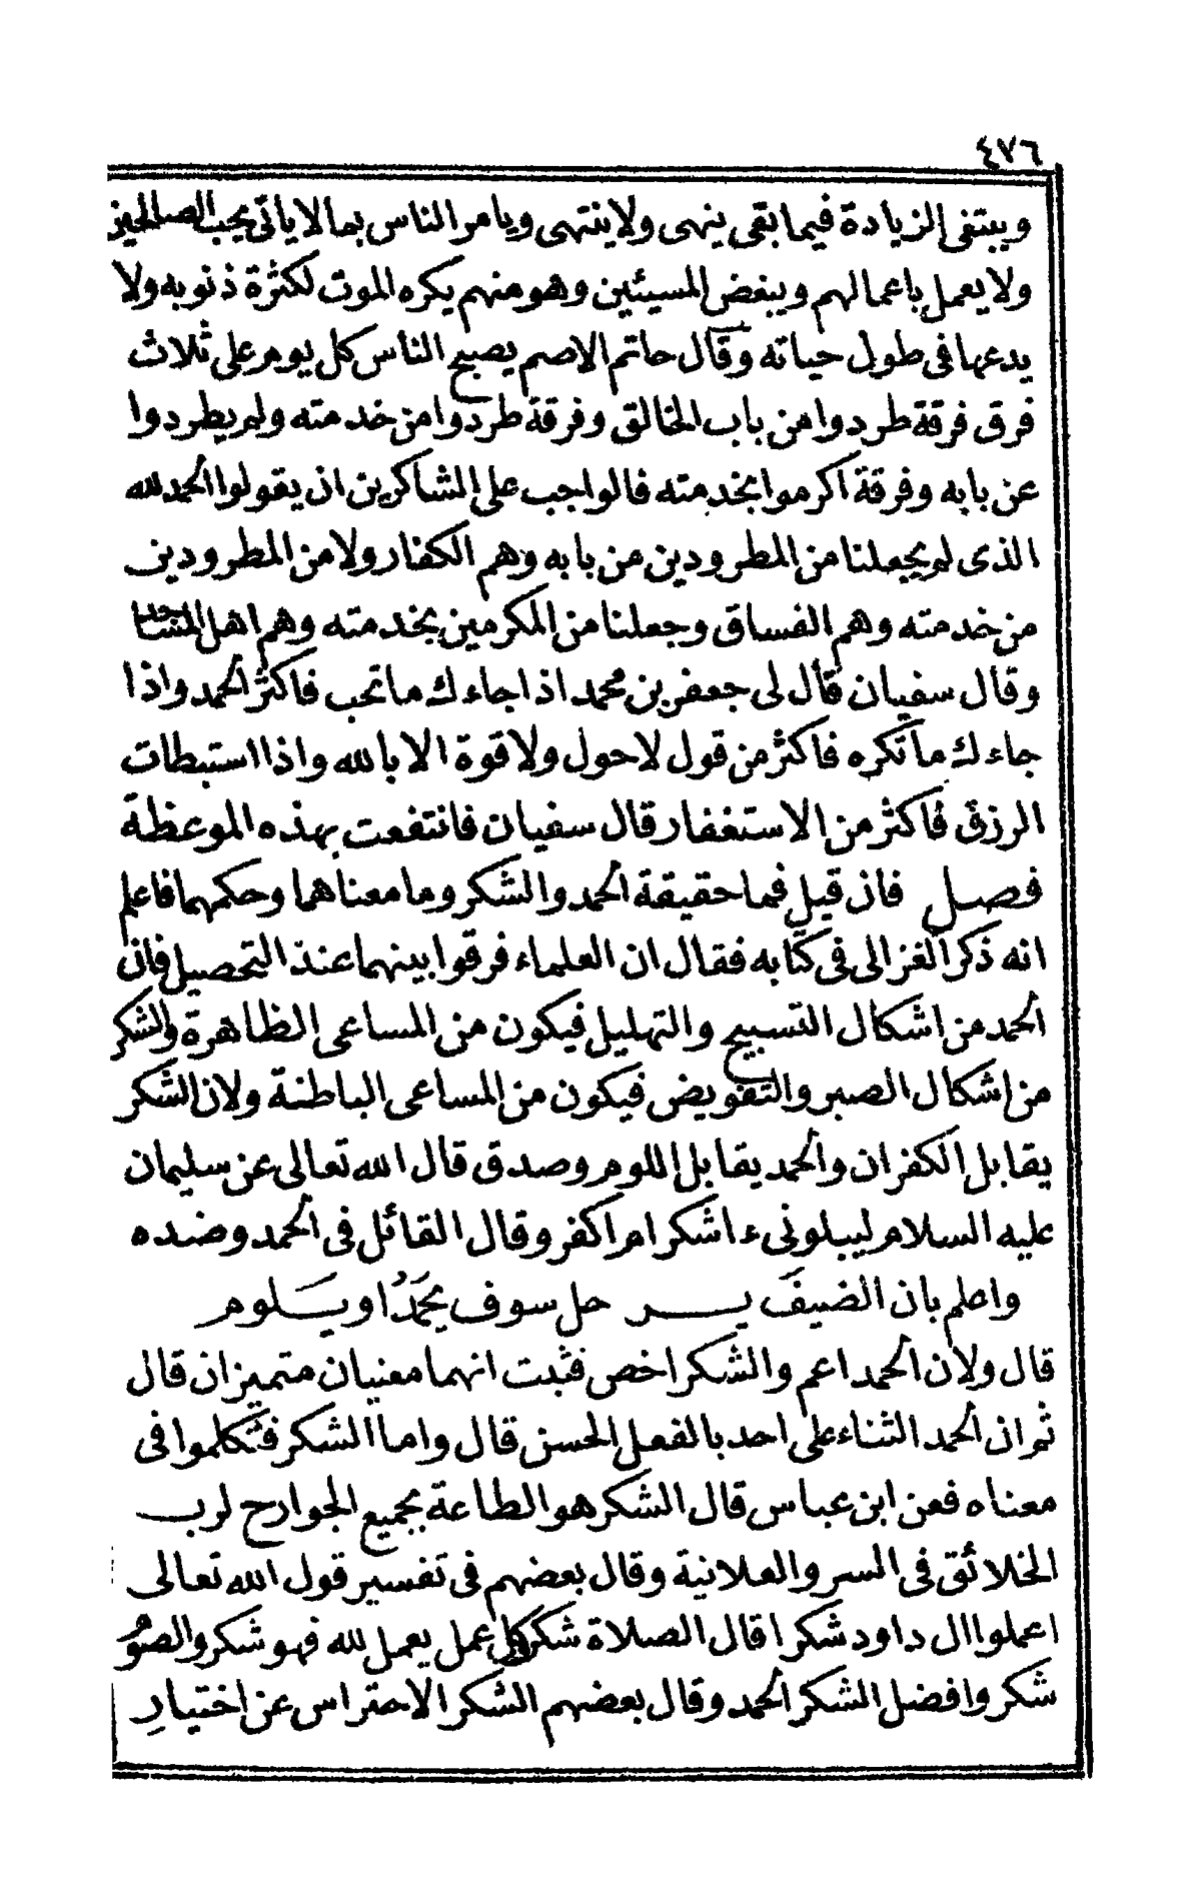 ٤٧٦
ويبتغى الزيادة فيما بقى ينهى ولا ينتهى ويامر الناس بما لا يأتى يحب الصالحين
ولا يعمل باعمالهم ويبغض المسيئين وهو منهم يكره الموت لكثرة ذنوبه ولا
يدعها فى طول حياته وقال حاتم الاصم يصبح الناس كل يوم على ثلاث
فرق فرقة طردوا من باب الخالق وفرقة طردوا من خدمته ولم يطردوا
عن بابه وفرقة اكرموا بخدمته فالواجب على الشاكرين ان يقولوا الحمد لله
الذى لم يجعلنا من المطرودين من بابه وهم الكفار ولا من المطرودين
من خدمته وهم الفساق وجعلنا من المكرمين بخدمته وهم اهل المساجد
وقال سفيان قال لى جعفر بن محمد اذا جاءك ما تحب فاكثر الحمد واذا
جاءك ما تكره فاكثر من قول لا حول ولا قوة الا بالله واذا استبطات
الرزق فاكثر من الاستغفار قال سفيان فانتفعت بهذه الموعظة
فصل فان قيل فما حقيقة الحمد والشكر وما معناهما وحكمهما فاعلم
انه ذكر الغزالى فى كتابه فقال ان العلماء فرقوا بينهما عند التحصيل فان
الحمد من اشكال التسبيح والتهليل فيكون من المساعى الظاهرة والشكر
من اشكال الصبر والتفويض فيكون من المساعى الباطنة ولان الشكر
يقابل الكفران والحمد يقابل اللوم وصدق قال الله تعالى عن سليمان
عليه السلام ليبلونى ءاشكر ام اكفر وقال القائل فى الحمد وضده
واعلم بان الضيفَ يــر حل سوف يحمَدُ او يَلوم
قال ولان الحمد اعم والشكر اخص فثبت انهما معنيان متميزان قال
ثم ان الحمد الثناء على احد بالفعل الحسن قال واما الشكر فتكلموا فى
معناه فعن ابن عباس قال الشكر هو الطاعة بجميع الجوارح لرب
الخلائق فى السر والعلانية وقال بعضهم فى تفسير قول الله تعالى
اعملوا ال داود شكرا قال الصلاة شكر وكل عمل يعمل لله فهو شكر والصوم
شكر وافضل الشكر الحمد وقال بعضهم الشكر الاحتراس عن اختيار